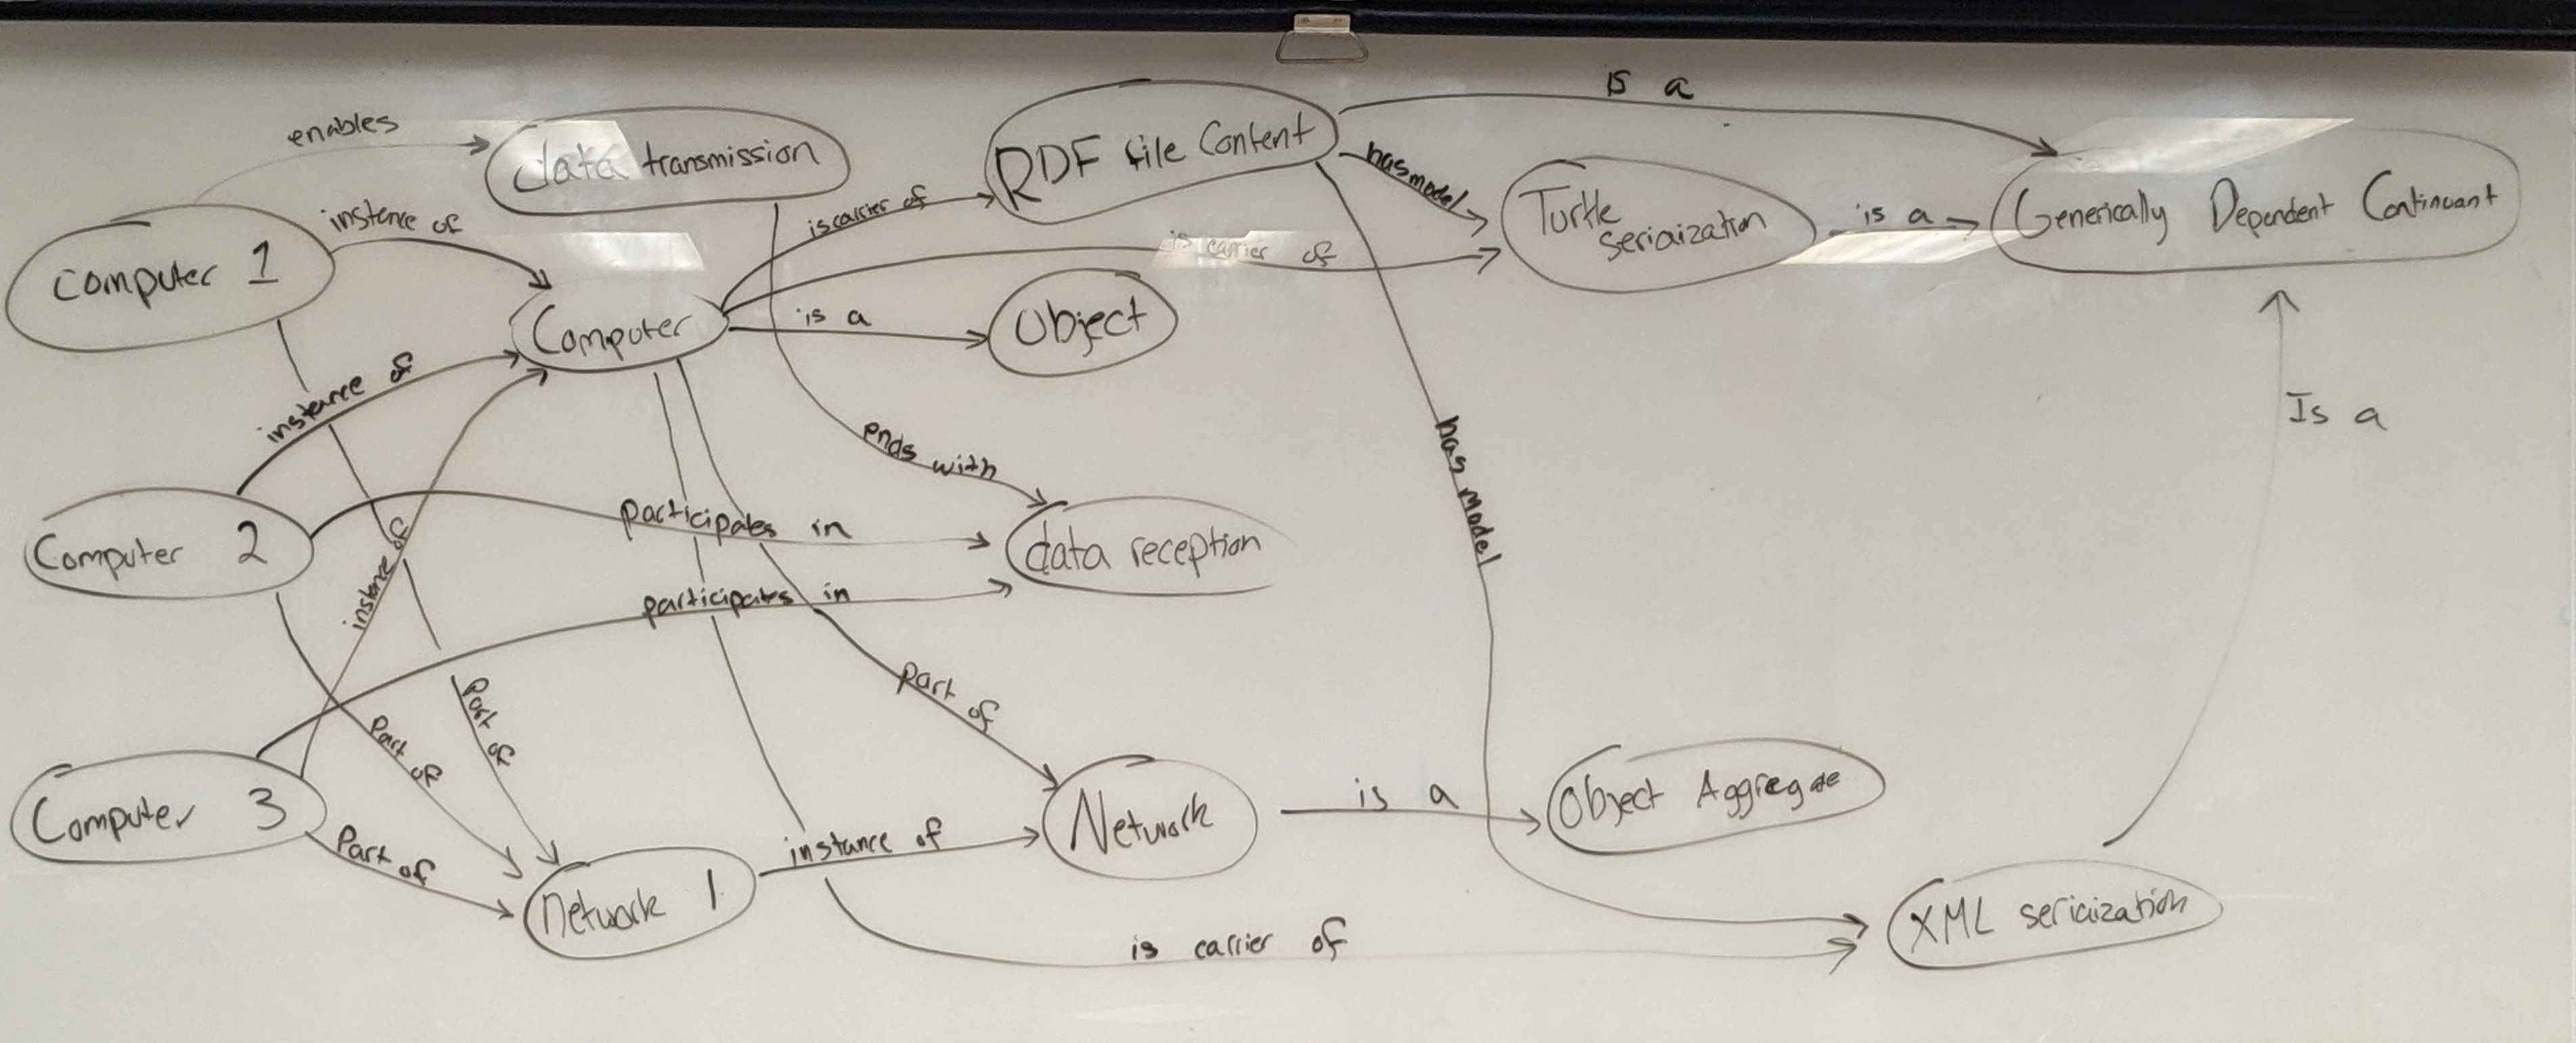 is a
enables
data transmission
RDF file Content
has model
instance of
is carrier of
Turtle
seriaization
is a
Generically Dependent Continuant
Computer 1
is carrier of
Computer
is a
Object
instance of
Is a
ends with
has model
participates in
Computer 2
data reception
instance of
participates in
part of
Part of
Part of
Computer 3
Part of
instance of
Network
is a
Object Aggregate
Network 1
is carrier of
XML seriaization